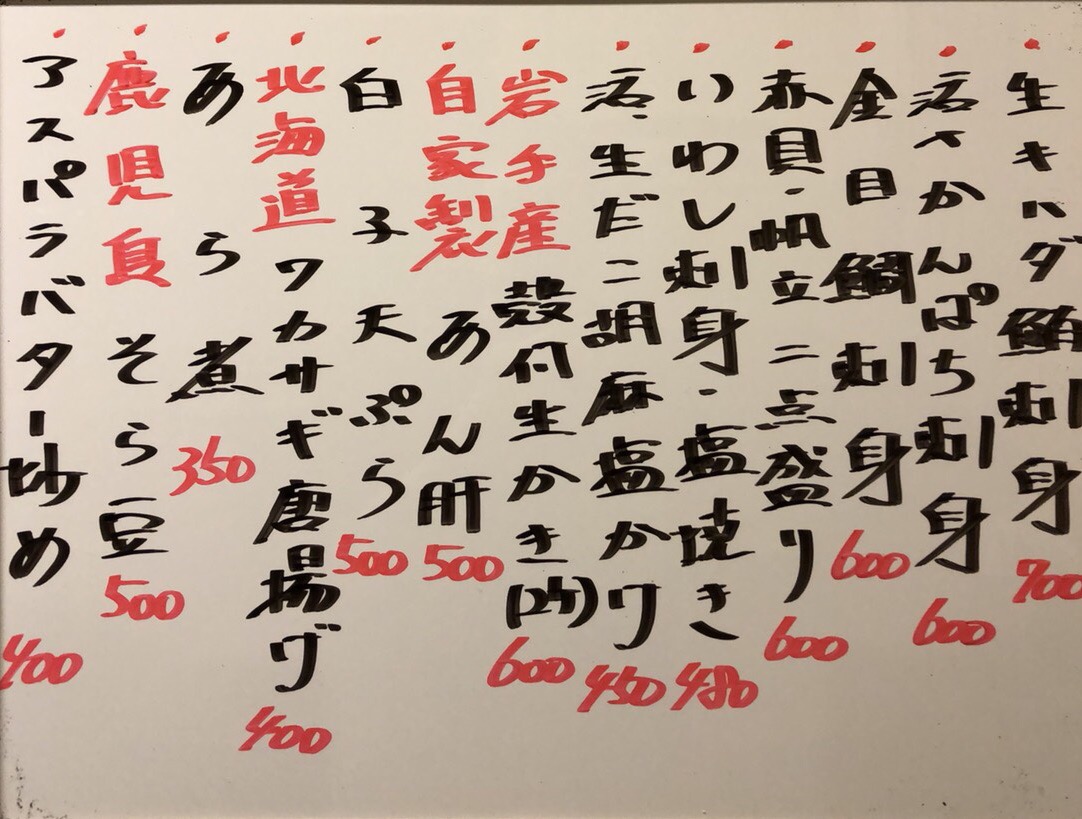 ・生キハダ鮪刺身 700
・活〆かんぱち刺身 600
・金目鯛刺身 600
・赤貝・帆立二点盛り 600
・いわし刺身・塩焼き 480
・活・生だこ胡麻塩かけ 450
・岩手産殻付生かき(2ケ) 600
・自家製あん肝 500
・白子天ぷら 500
・北海道ワカサギ唐揚げ 400
・あら煮 350
・鹿児島そら豆 500
・アスパラバター炒め 400